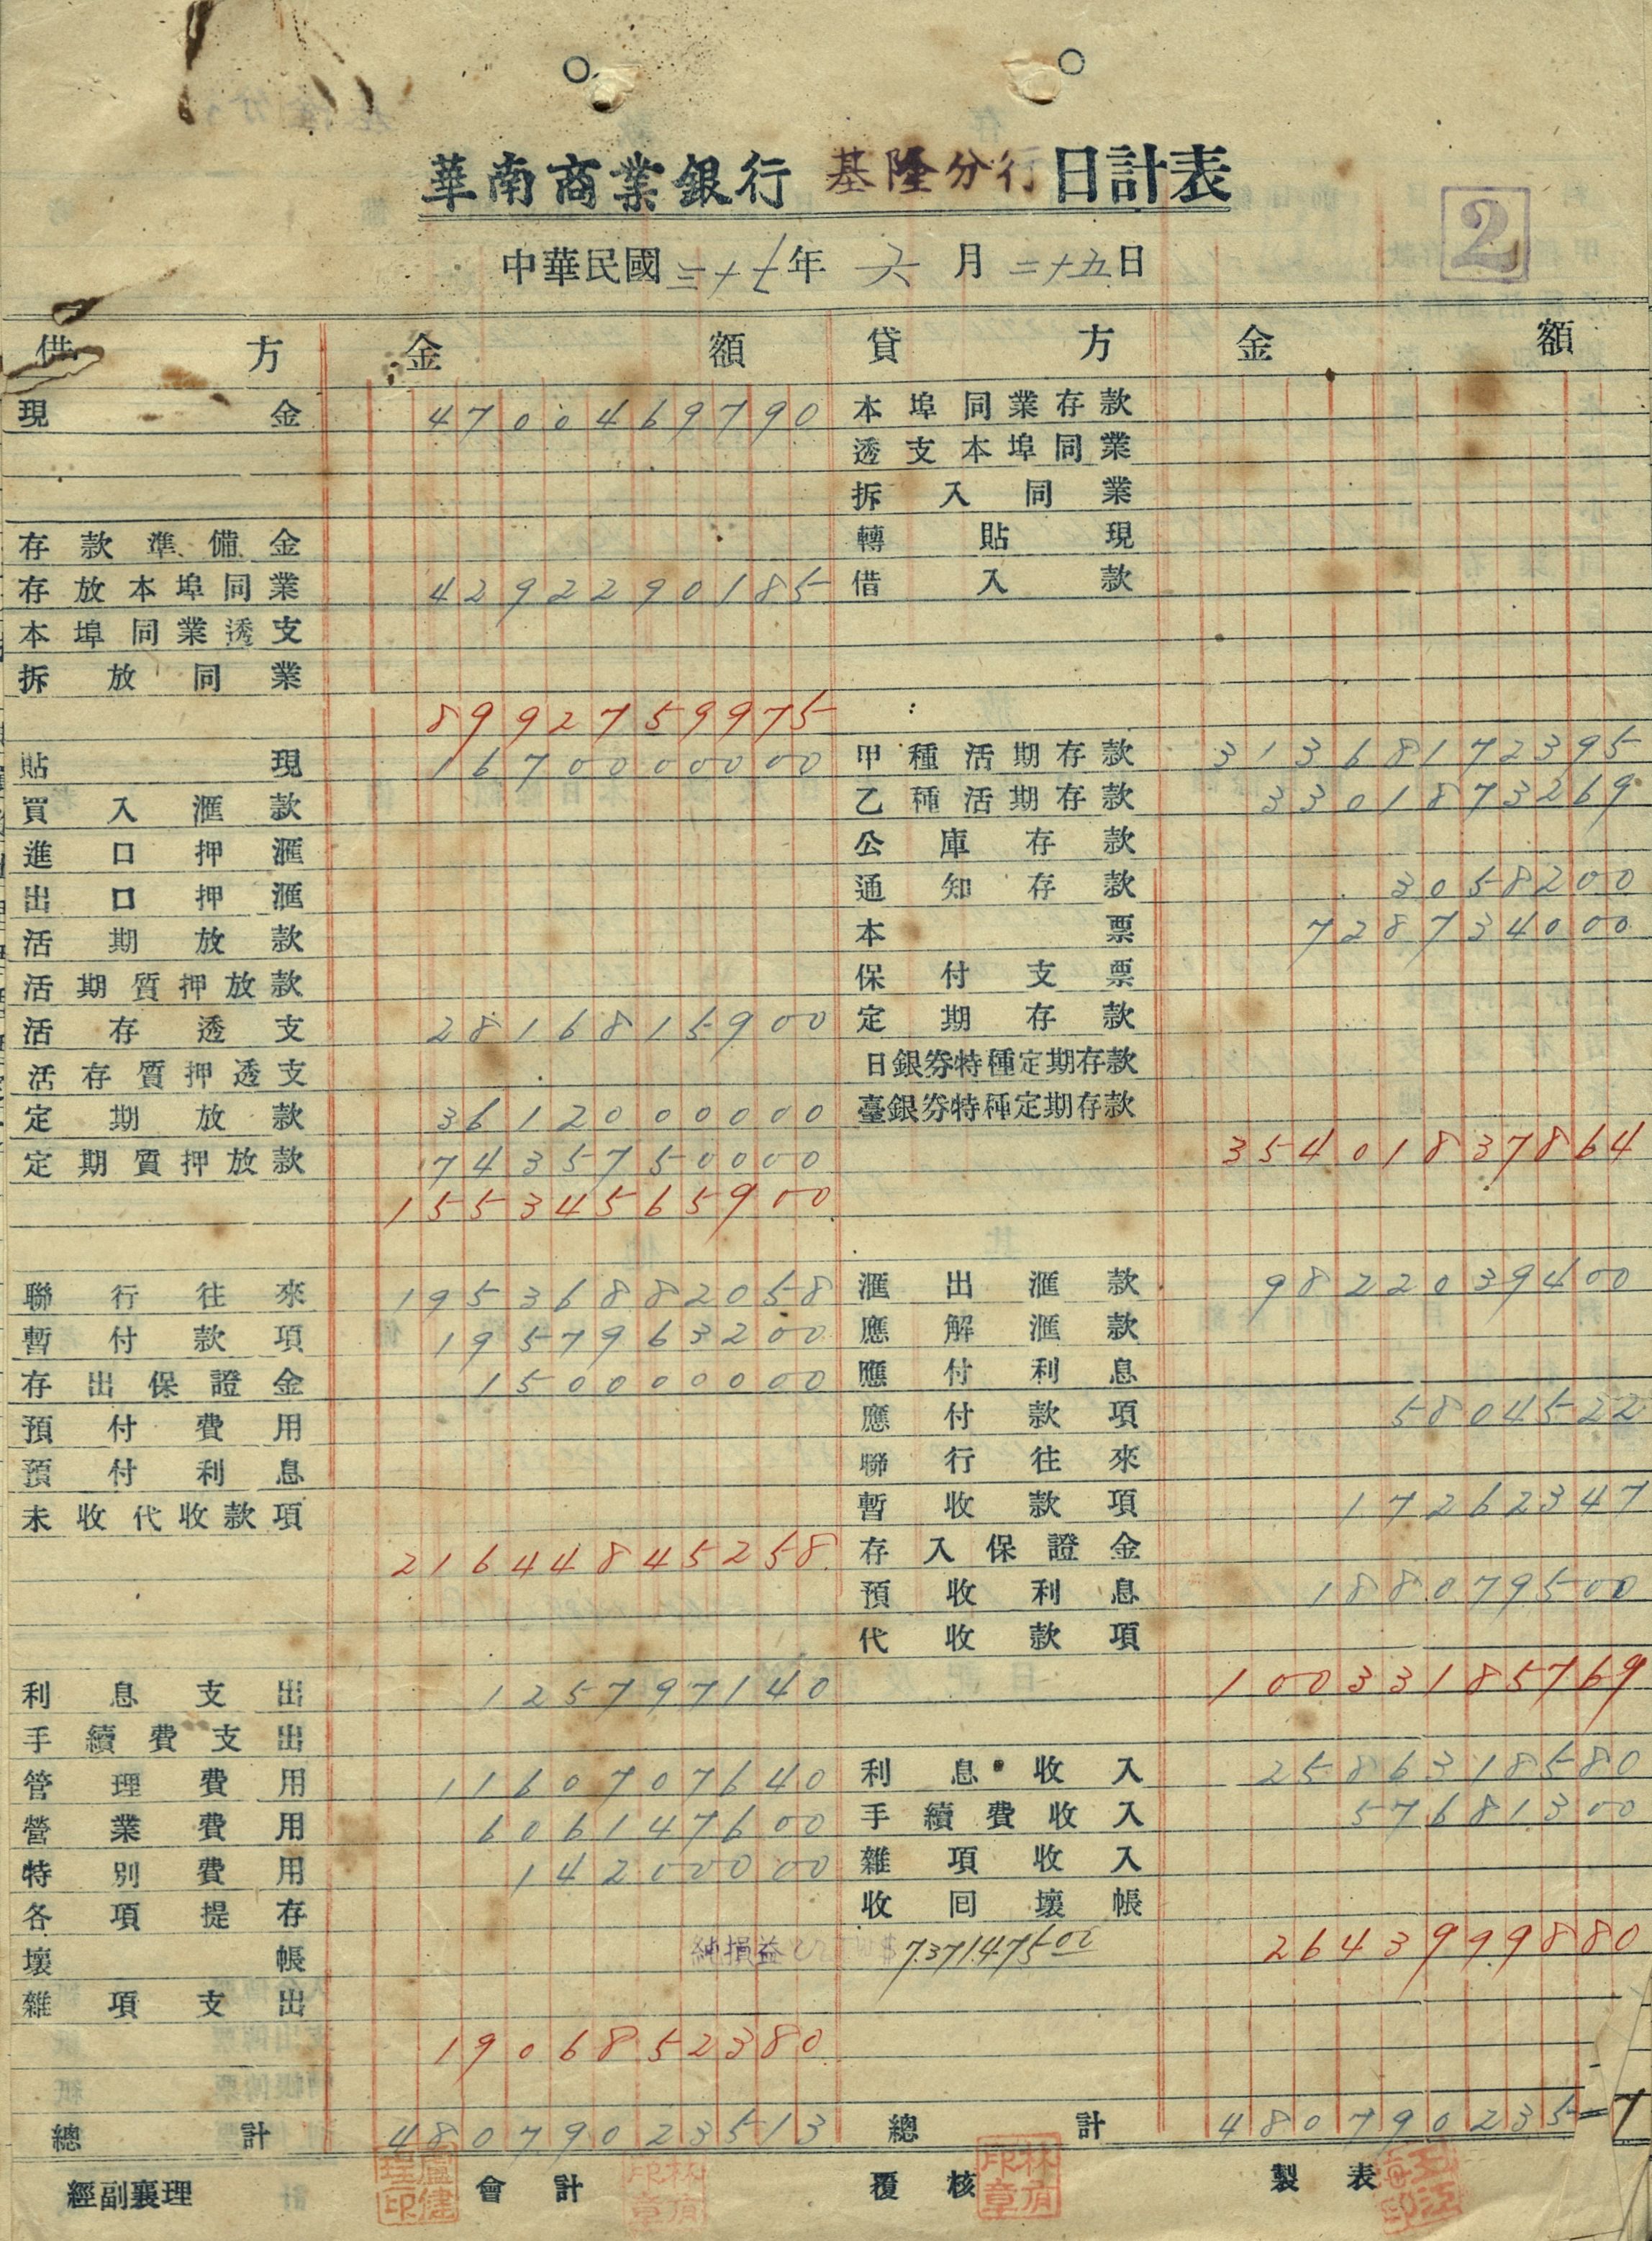 華南商業銀行 基隆分行 日計表
2
中華民國三十七年 六月 二十五日
借方 金額 貸方 金額
現金 4700469790 本埠同業存款
透支本埠同業
拆入同業
存款準備金 轉貼現
存放本埠同業 4292290185 借入款
本埠同業透支
拆放同業
8992759975
貼現 1670000000 甲種活期存款 31368172395
買入滙款 乙種活期存款 3301873269
進口押滙 公庫存款
出口押滙 通知存款 3058200
活期放款 本票 728734000
活期質押放款 保付支票
活存透支 2816815900 定期存款
活存質押透支 日銀券特種定期存款
定期放款 3612000000 臺銀券特種定期存款
定期質押放款 7435750000 35401837864
15534565900
聯行往來 19536882058 滙出滙款 9822039400
暫付款項 1957963200 應解滙款
存出保證金 150000000 應付利息
預付費用 應付款項 5804522
預付利息 聯行往來
未收代收款項 暫收款項 17262347
21644845258 存入保證金
預收利息 188079500
代收款項
利息支出 125797140 10033185769
手續費支出
管理費用 1160707640 利息收入 2586318580
營業費用 606147600 手續費收入 57681300
特別費用 14200000 雜項收入
各項提存 收回壞帳
壞帳 純損益 7.371.475.00 2643999880
雜項支出
1906852380
總計 48079023513 總計 480790235
經副襄理 會計 覆核 製表